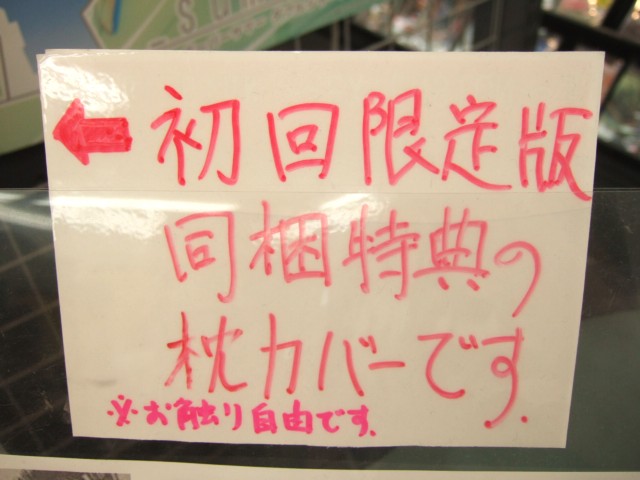 ←初回限定版
同梱特典の
枕カバーです.
※お触り自由です.